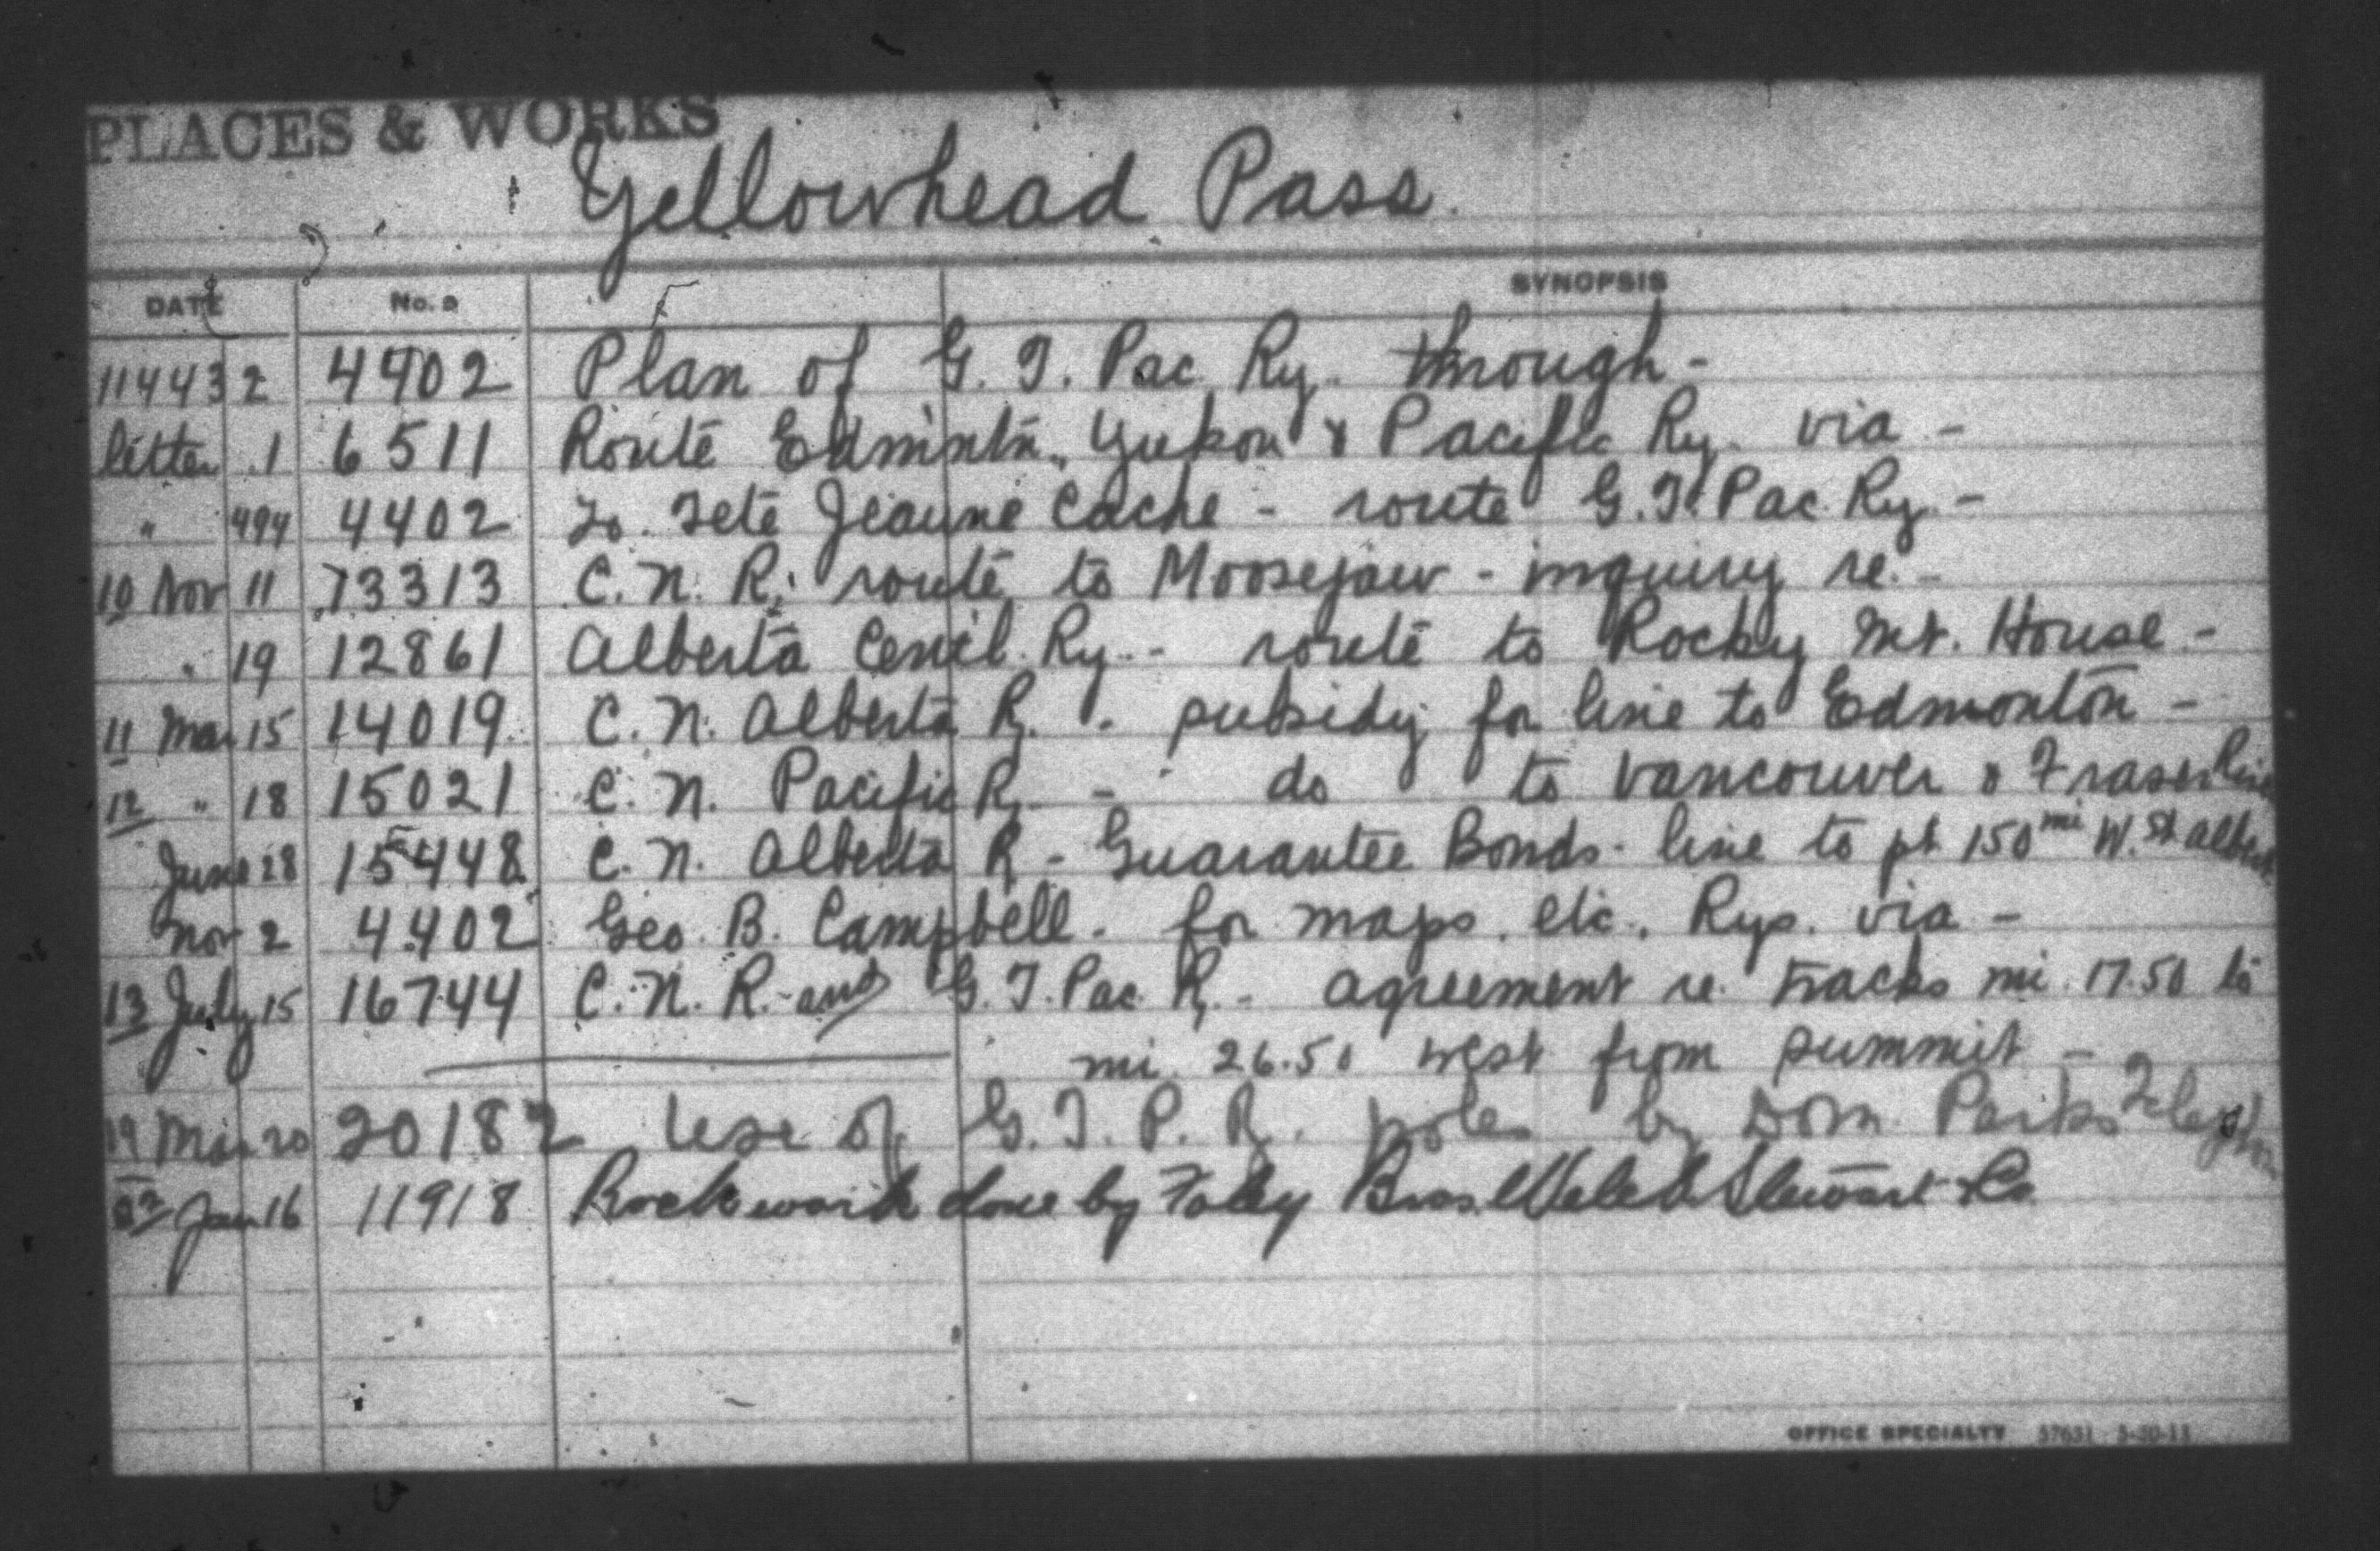 PLACES & WORKS
Yellowhead Pass.
DATE No. s SYNOPSIS
114432 4402 Plan of G. T. Pac. Ry. through -
letter 1 6511 Route Edmintn, Yukon & Pacific Ry. via -
" 494 4402 To Tete Jeaune Cache - route G. T. Pac. Ry. -
10 Nov 11 13313 C. N. R. route to Moosejaw - inquiry re. -
" 19 12861 Alberta Centl. Ry. - route to Rocky Mt. House -
11 Mar 15 14019 C. N. Alberta Ry. - subsidy for line to Edmonton -
12 " 18 15021 C. N. Pacific Ry. - do to Vancouver & Fraser River
June 28 15448 C. N. Alberta Ry - Guarantee Bonds - line to pt. 150 mi W. St Albert
Nov 2 4402 Geo. B. Campbell. for maps, etc. Rys. via -
13 July 15 16744 C. N. R. and G. T. Pac. Ry. - agreement re. tracks mi. 17.50 to
mi. 26.50 west from summit -
19 20 20182 Use of G. T. P. R. poles by Dom. Parks
Jan 16 11918 Rock work done by Foley Bros. Welch Stewart & Co
OFFICE SPECIALTY 57631 5-20-13